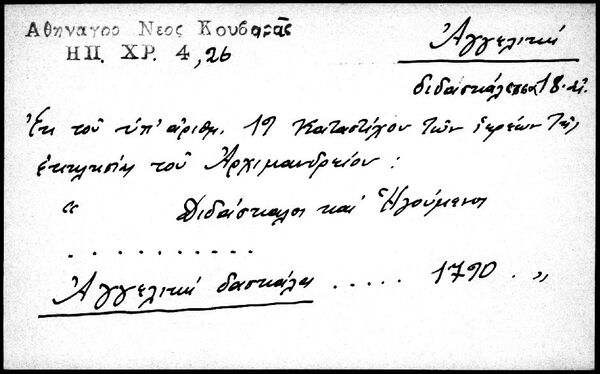 Αθηναγορ Νεος Κουβαρᾶς
ΗΠ. ΧΡ. 4, 26
Ἀγγελικὴ
διδασκάλισσα 18. αἰ.
Ἐκ τοῦ ὑπ' ἀριθμ. 19 Καταστίχου τῶν ἱερέων τῆς
ἐκκλησίας τοῦ Ἀρχιμανδρείου :
“ Διδάσκαλοι καὶ Ἡγούμενοι
. . . . . . . . . . .
Ἀγγελικὴ δασκάλα ..... 1790 . „